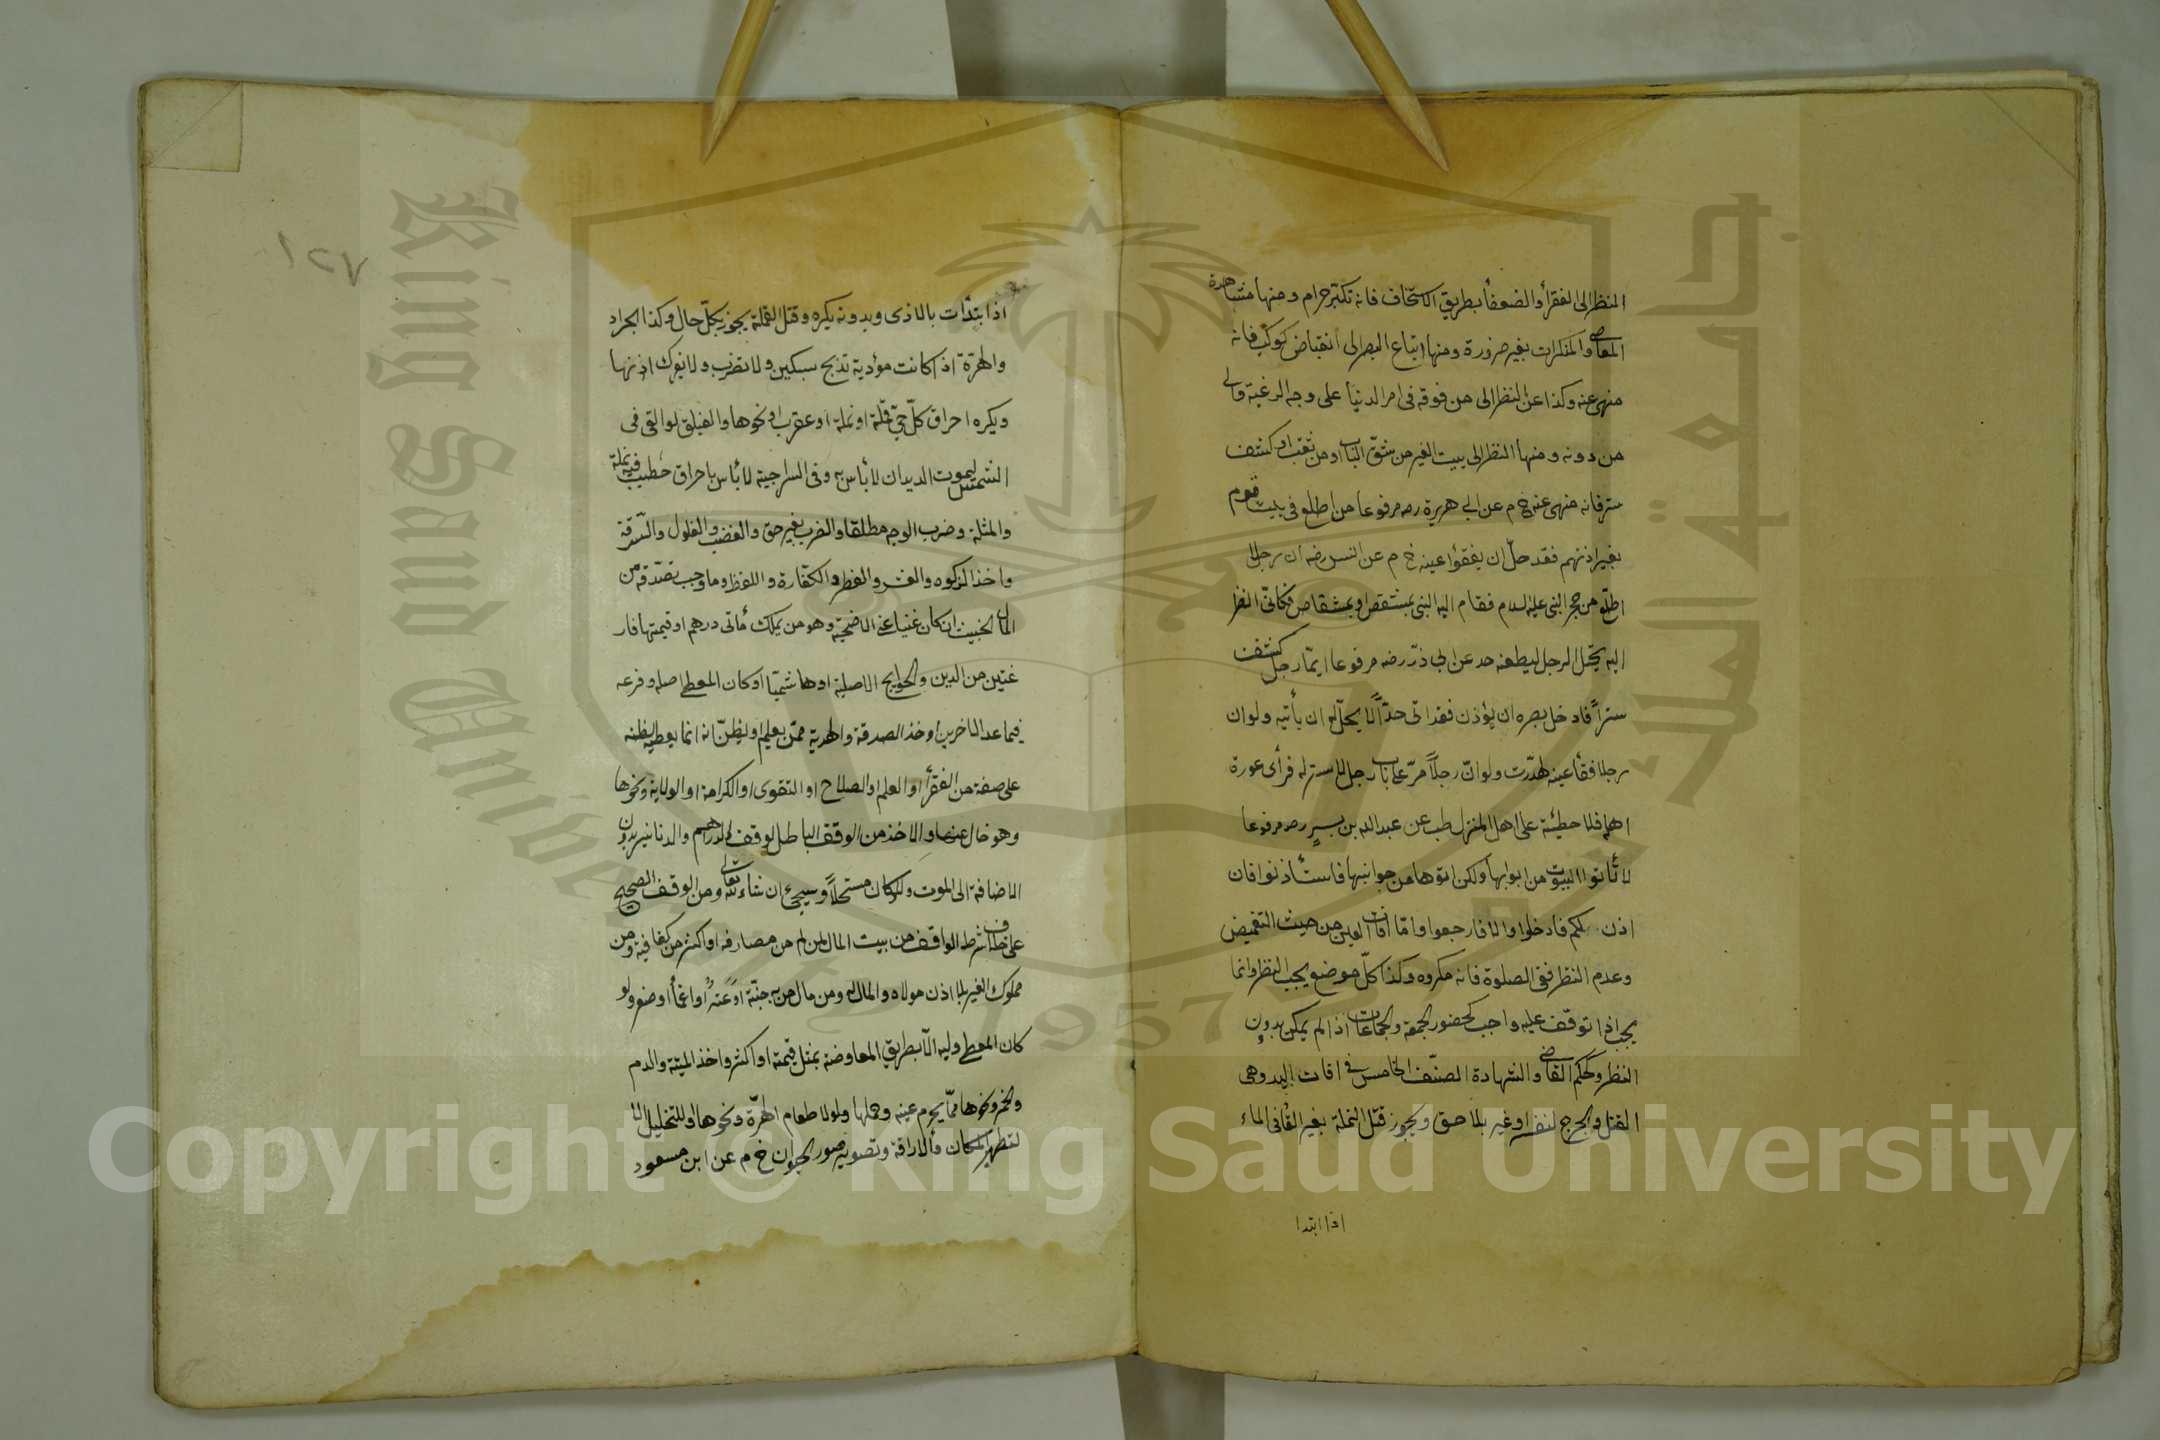 النظر الى الفقرأ والضعفأ بطريق الاستخفاف فانه تكبّر حرام ومنها مشاهدة
المعاصى والمنكرات بغير ضرورة ومنها اتباع البصر الى انقضاض كوكب فانه
منهى عنه وكذا عن النظر الى من فوقه فى امر الدنيا على وجه الرغبة والى
من دونه ومنها النظر الى بيت الغير من شقّ الباب او من ثقب او كشف
ستر فانه منهى عنه خ م عن ابى هريرة رضه مرفوعا من اطلع فى بيت قوم
بغير اذنهم فقد حلّ ان يفقؤا عينه خ م عن انس رضه ان رجلا
اطلع من حجر النبى عليه السلام فقام اليه النبى بمشقص او بمشقاص فكانّى انظر
اليه يختل الرجل ليطعنه حد عن ابى ذرّ رضه مرفوعا ايّما رجل كشف
ستراً فادخل بصره ان يؤذن فقد اتى حدّاً لا يحلّ له ان يأتيه ولو ان
رجلا فقأ عينه لهدّرت ولو انّ رجلاً مرّ على باب رجل لا ستر له فرأى عورة
اهله فلا خطيئة على اهل المنزل طب عن عبد الله بن بسر رضه مرفوعا
لا تأتوا البيوت من ابوابها ولكن ائتوها من جوانبها فاستأذنوا فان
اذن لكم فادخلوا والا فارجعوا وامّا افات العين من حيث التغميض
وعدم النظر ففى الصلوة فانه مكروه وكذا كلّ موضع يجب النظر وانما
يجب اذا توقف عليه واجب كحضور الجمعة والجماعات اذا لم يمكن بدون
النظر وكحكم القاضى والشهادة الصنّف الخامس فى افات اليد وهى
القتل والجرح لنفسه او غيره بلا حق ويجوز قتل النملة بغير القائ فى الماء
اذا ابتدا
١٢٧
اذا ابتدأت بالاذى وبدونه يكره وقتل القملة يجوز بكلّ حال وكذا الجراد
والهرّة اذا كانت مؤدية تذبح بسكين ولا تضرب ولا يفرك اذنها
ويكره احراق كلّ حىّ قملة او نملة او عقرب او نحوها والفيلق لو القى فى
الشمس ليموت الديدان لا بأس به وفى السراجية لا بأس باحراق حطب فيه نملة
والمثلة وضرب الوجه مطلقا والضرب بغير حق والغضب والغلول والسّرقة
واخذ الزكوة والنذر والفطر والكفّارة واللقطة وما وجب تصدّقه من
المال الخبيث ان كان غنيا غنى الاضحية وهو من يملك مأتى درهم او قيمتها فار
غتين من الدين والحوايج الاصلية او هاشميّا او كان المعطى اصله وفرعه
فيما عد الاخرين واخذ الصدقة والهدية ممّن يعلم او يظنّ انه انما يعطيه لظنه
على صفة من الفقرأ او العلم او الصلاح او التقوى او الكرامة او الولاية ونحوها
وهو خال عنها والاخذ من الوقف الباطل لوقف الدراهم والدنانير بدون
الاضافة الى الموت ولو كان مستحلاً وسيجئ ان شاء الله تعالى ومن الوقف الصحيح
على خلاف شرط الواقف من بيت المال لمن لم من مصارفه او اكثر من كفافيه ومن
مملوك الغير بلا اذن مولاه والمال له ومن مال من به جنّة او عته او اغمأ او صغر ولو
كان المعطى وليه الاّ بطريق المعاوضة بمثل قيمته او اكثر واخذ الميتة والدم
والخمر ونحوها ممّا يحرم عينه وحملها ولو لا طعام الهرّة ونحوها او للتخليل الا
لتطهير المكان والاراقة وتصوير صور الحيوان خ م عن ابن مسعود